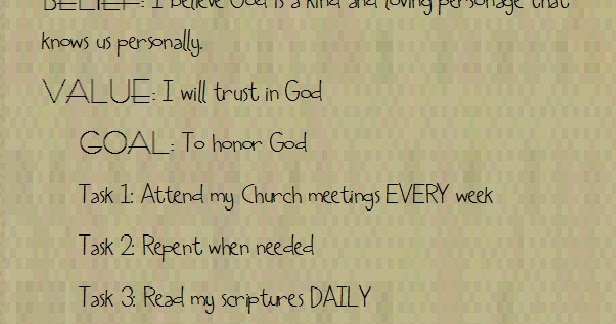 BELIEF: I believe God is a kind and loving personage that
knows us personally.
VALUE: I will trust in God
GOAL: To honor God
Task 1: Attend my Church meetings EVERY week
Task 2: Repent when needed
Task 3: Read my scriptures DAILY